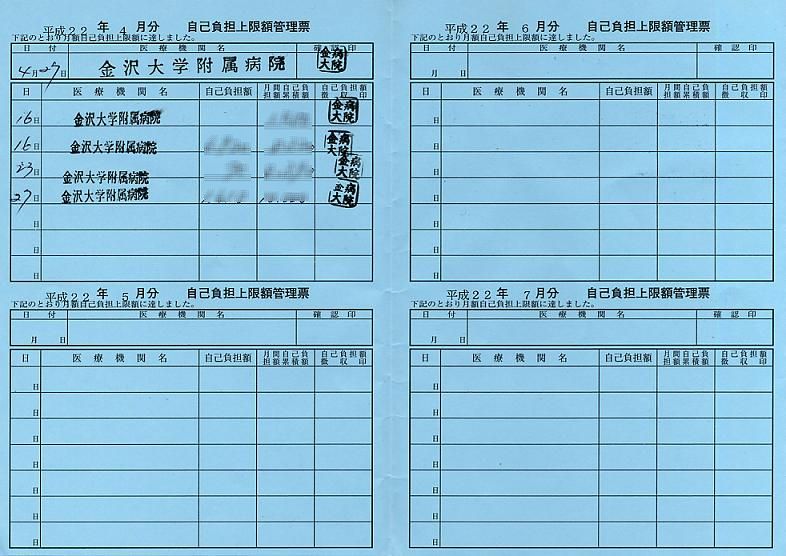 平成22年 4 月分 自己負担上限額管理票
下記のとおり月額自己負担上限額に達しました。
日 付 医 療 機 関 名 確 認 印
4月27日 金沢大学附属病院 金病大院
日 医 療 機 関 名 自己負担額 月間自己負担額累積額 自己負担額徴収印
16日 金沢大学附属病院 金病大院
16日 金沢大学附属病院 金病大院
23日 金沢大学附属病院 金病大院
27日 金沢大学附属病院 金病大院
日
日
日
平成22年 5 月分 自己負担上限額管理票
下記のとおり月額自己負担上限額に達しました。
日 付 医 療 機 関 名 確 認 印
月 日
日 医 療 機 関 名 自己負担額 月間自己負担額累積額 自己負担額徴収印
日
日
日
日
日
日
日
平成22年 6 月分 自己負担上限額管理票
下記のとおり月額自己負担上限額に達しました。
日 付 医 療 機 関 名 確 認 印
月 日
日 医 療 機 関 名 自己負担額 月間自己負担額累積額 自己負担額徴収印
日
日
日
日
日
日
日
平成22年 7 月分 自己負担上限額管理票
下記のとおり月額自己負担上限額に達しました。
日 付 医 療 機 関 名 確 認 印
月 日
日 医 療 機 関 名 自己負担額 月間自己負担額累積額 自己負担額徴収印
日
日
日
日
日
日
日